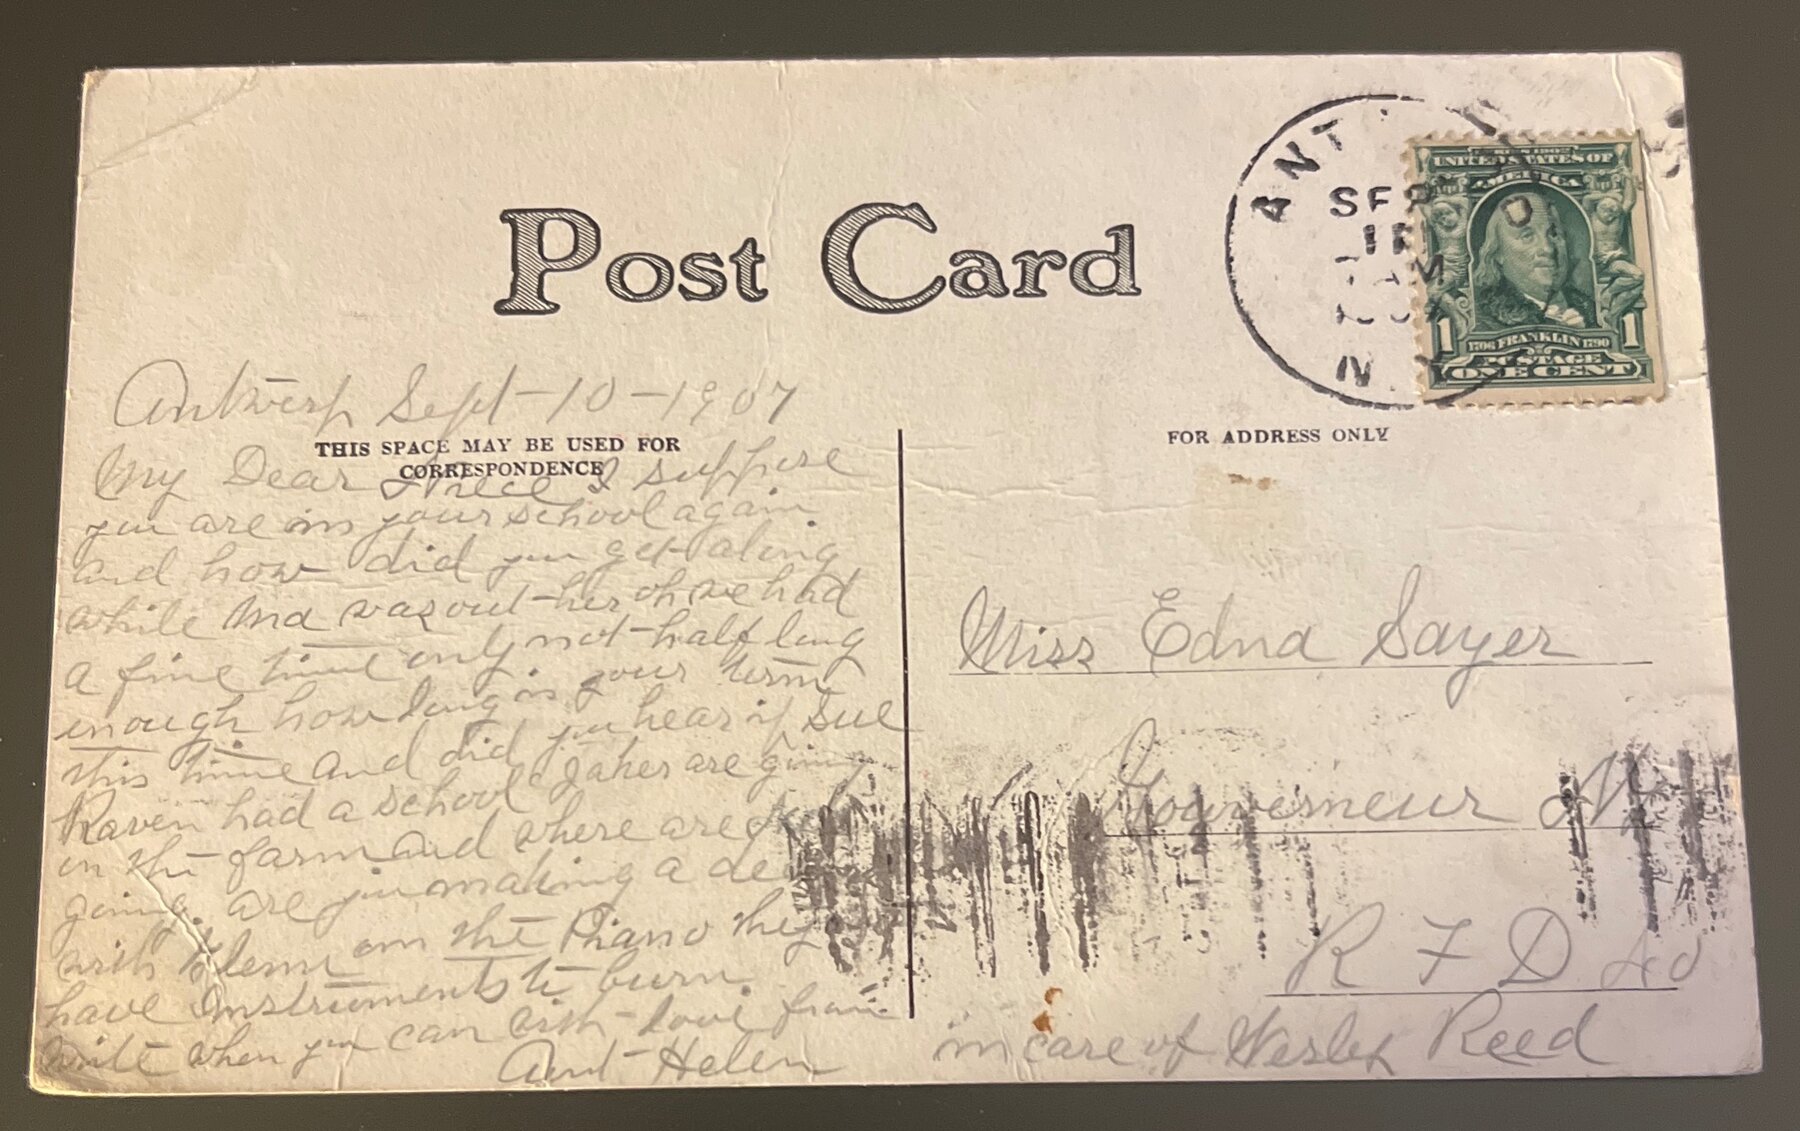 Post Card
ANT
SEP
M
N.Y.
SERIES 1902
UNITED STATES OF
AMERICA
1 1706 FRANKLIN 1790 1
POSTAGE
ONE CENT
Antwerp Sept-10-1907
THIS SPACE MAY BE USED FOR
CORRESPONDENCE
My Dear Niece I suppose
you are in your school again
and how did you get along
while Ma was out her oh we had
a fine time only not half long
enough how long is your term
this time and did you hear if Sue
Raven had a school Jakes are going
on the farm and where are
going. are you making a
with Glenn on the Piano they
have Instruments to burn
write when you can with love from
Aunt Helen
FOR ADDRESS ONLY
Miss Edna Sayer
Gouverneur NY
R F D
in care of Wesley Reed